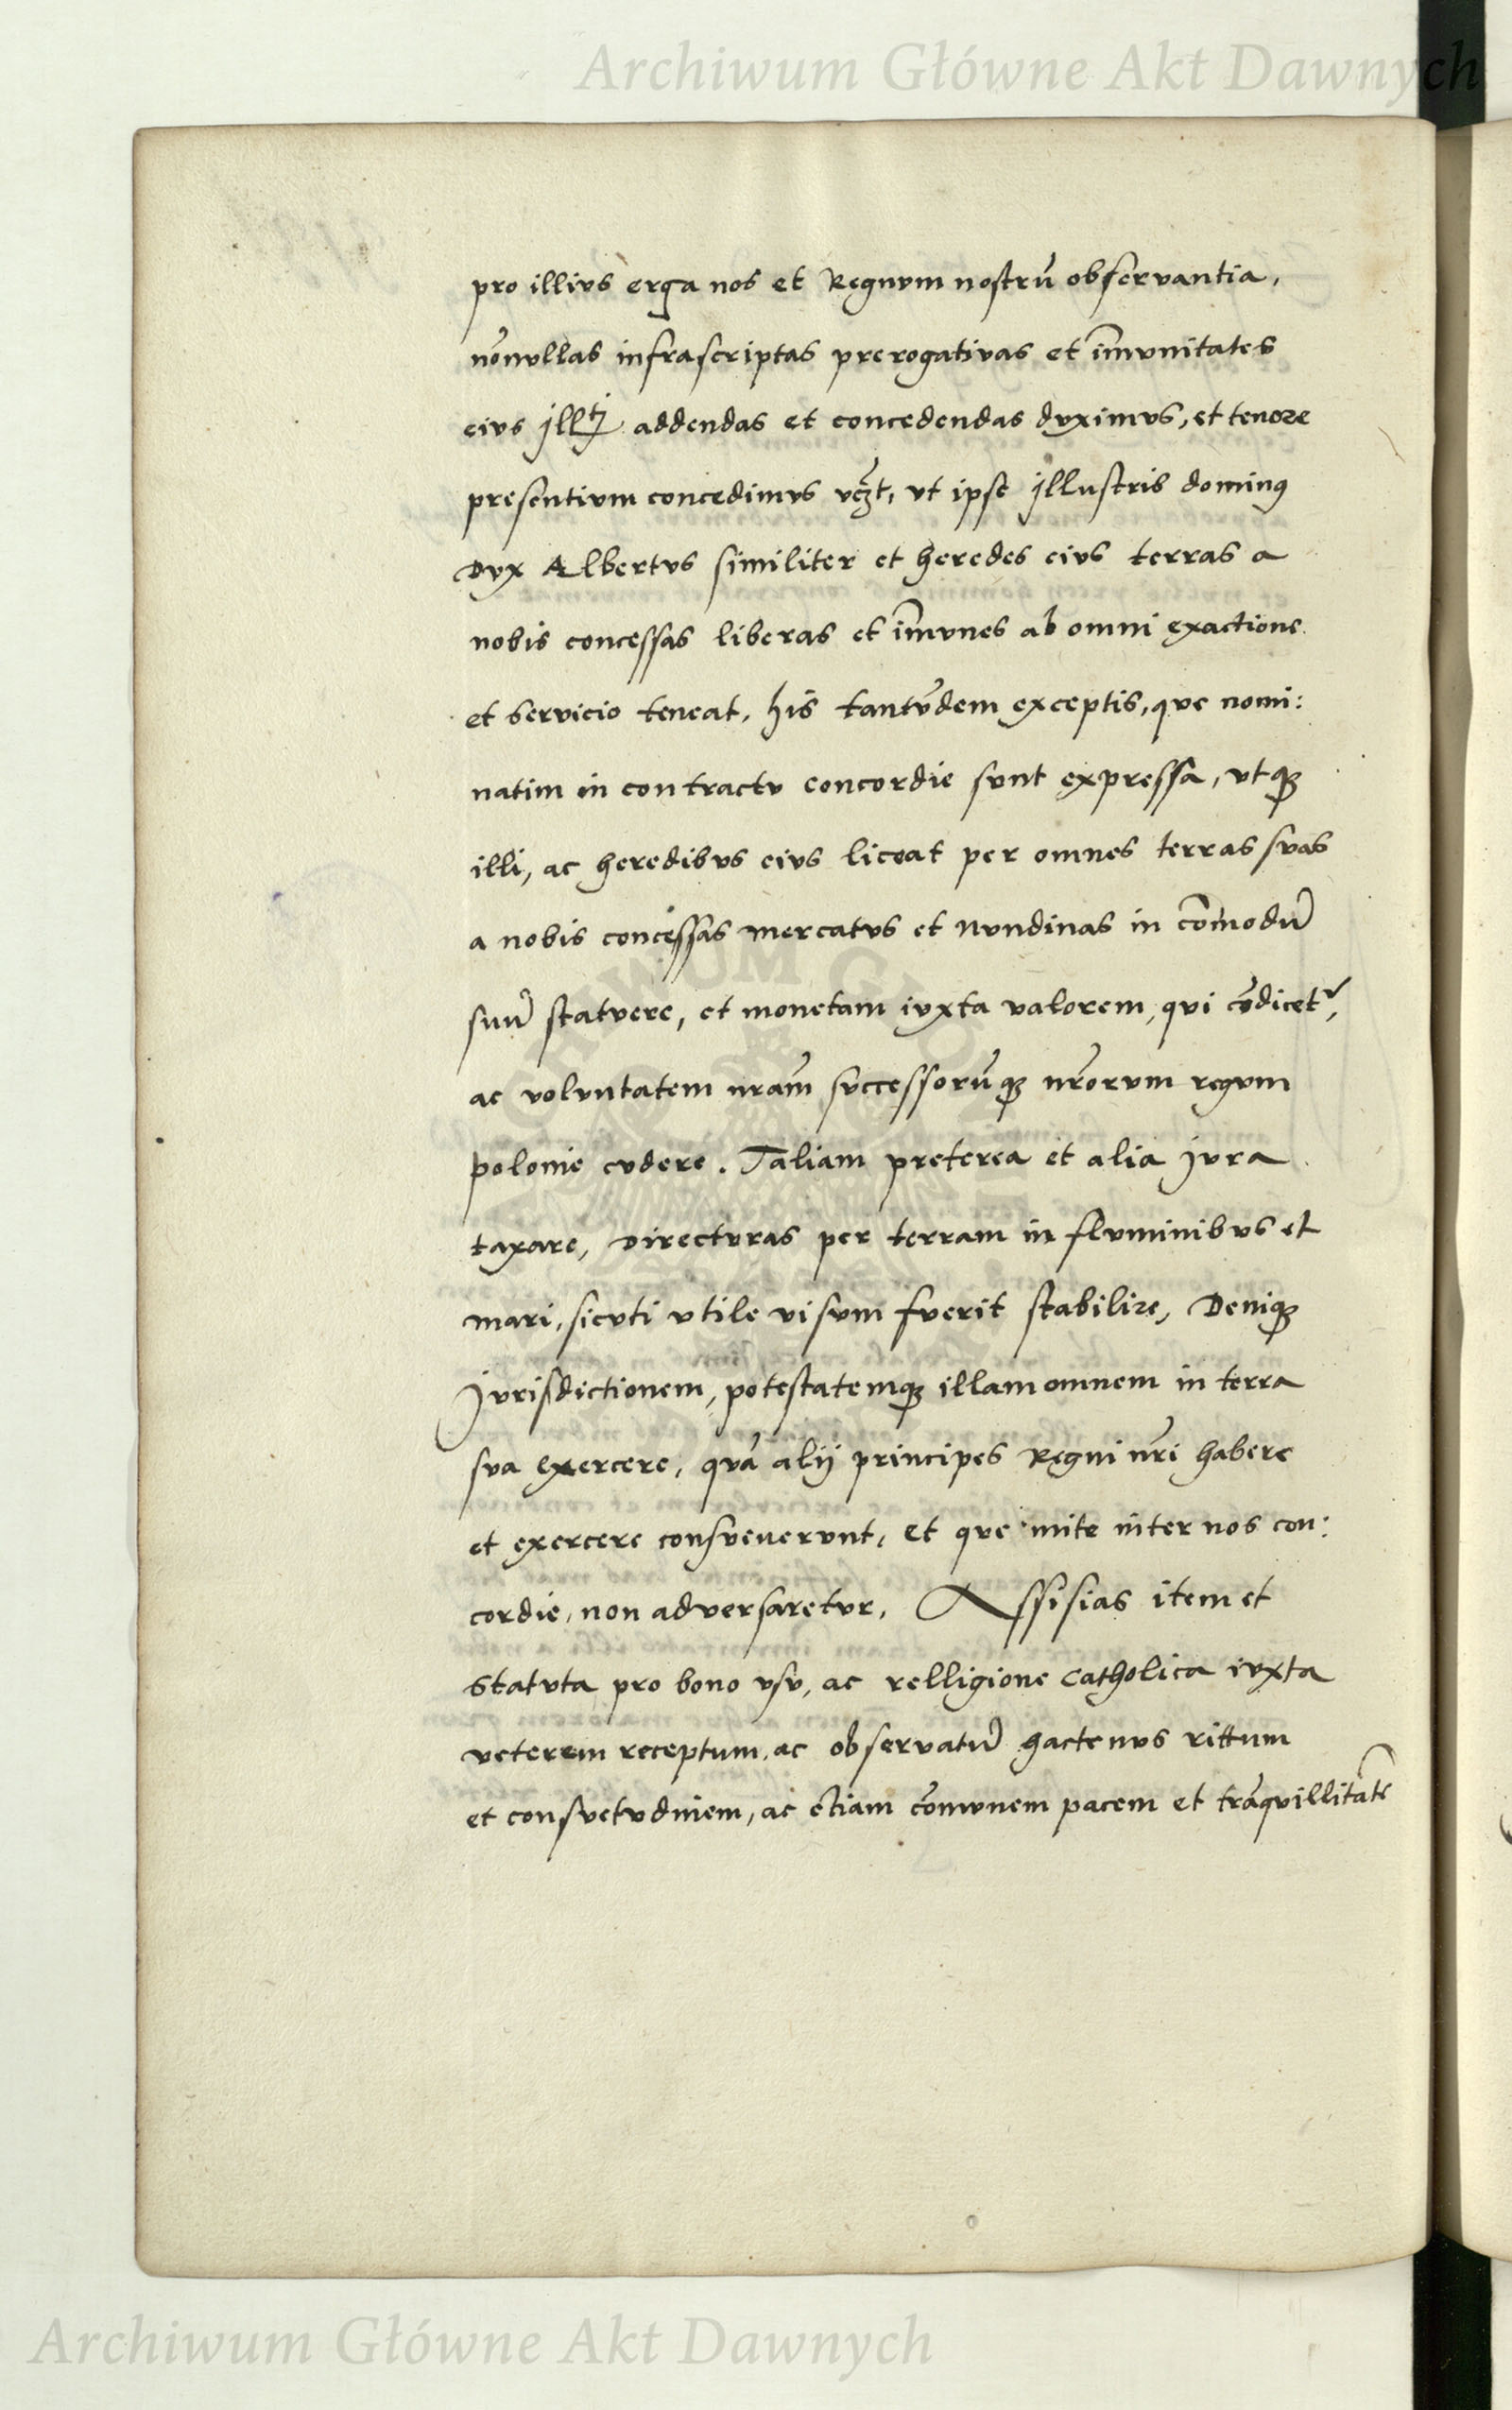 Archiwum Główne Akt Dawnych
pro illius erga nos et Regnum nostrū obseruantia,
nōnullas infrascriptas prerogatiuas et im̄unitates
eius Jllti addendas et concedendas duximus, et tenore
presentium concedimus vcꝫt, vt ipse Jllustris dominꝰ
Dux Albertus similiter et heredes eius terras a
nobis concessas liberas et im̄unes ab omni exactione
et seruicio teneat, his tantūdem exceptis, que nomi:
natim in contractu concordie sunt expressa, vtqꝫ
illi, ac heredibus eius liceat per omnes terras suas
a nobis concessas mercatus et nundinas in com̄odū
suū statuere, et monetam iuxta valorem, qui cōdicetʳ,
ac voluntatem nram̄ successorūqꝫ nr̄orum regum
polonie cudere. Taliam preterea et alia Jura
taxare, Directuras per terram in fluminibus et
mari, sicuti vtile visum fuerit stabilire, Deniqꝫ
Jurisdictionem, potestatemqꝫ illam omnem in terra
sua exercere, quā alij principes Regni nr̄i habere
et exercere consueuerunt, et que inite inter nos con:
cordie, non aduersaretur, Assisias item et
statuta pro bono vsu, ac relligione catholica iuxta
veterem receptum, ac obseruatū hactenus rittum
et consuetudinem, ac etiam cōmunem pacem et trāquillitatē
Archiwum Główne Akt Dawnych